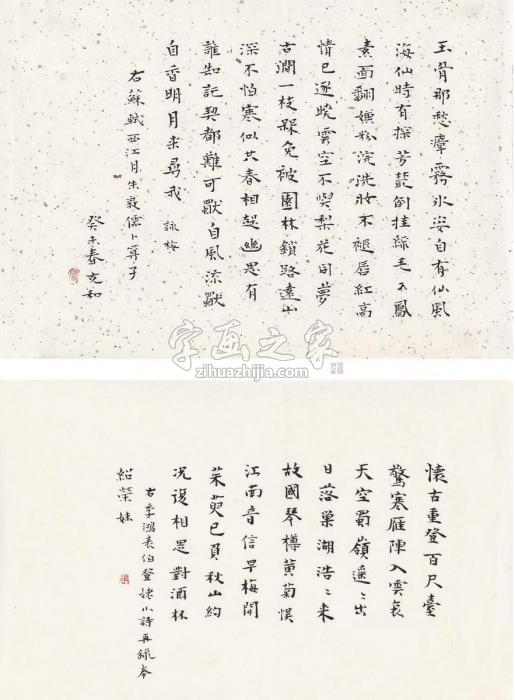 玉骨那愁瘴霧氷姿自有仙風
海仙時有探芳叢倒挂綠毛么鳳
素面翻嫌粉涴洗妝不褪唇紅高
情已逐曉雲空不與梨花同夢
古澗一枝槑免被園林鎖路遠山
深不怕寒似共春相趓幽思有
誰知託契都難可獨自風流獨
自香明月来尋我 詠梅
右蘇軾西江月朱敦儒卜算子
癸未春充和
字画之家
zihuazhijia.com
懷古重登百尺臺
驚寒雁陣入雲哀
天空蜀嶺遥〻出
日落巢湖浩〻来
故國琴樽黄菊悮
江南音信早梅開
茱萸已負秋山約
况復相思對酒杯
右李鴻表伯登姥小詩再録奉
紹榮妹